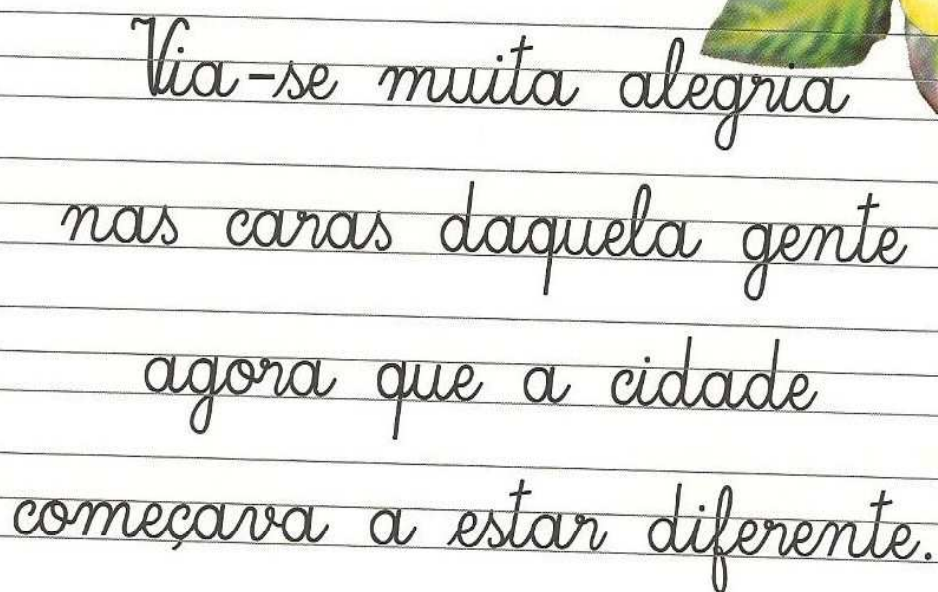 Via-se muita alegria
nas caras daquela gente
agora que a cidade
começava a estar diferente.